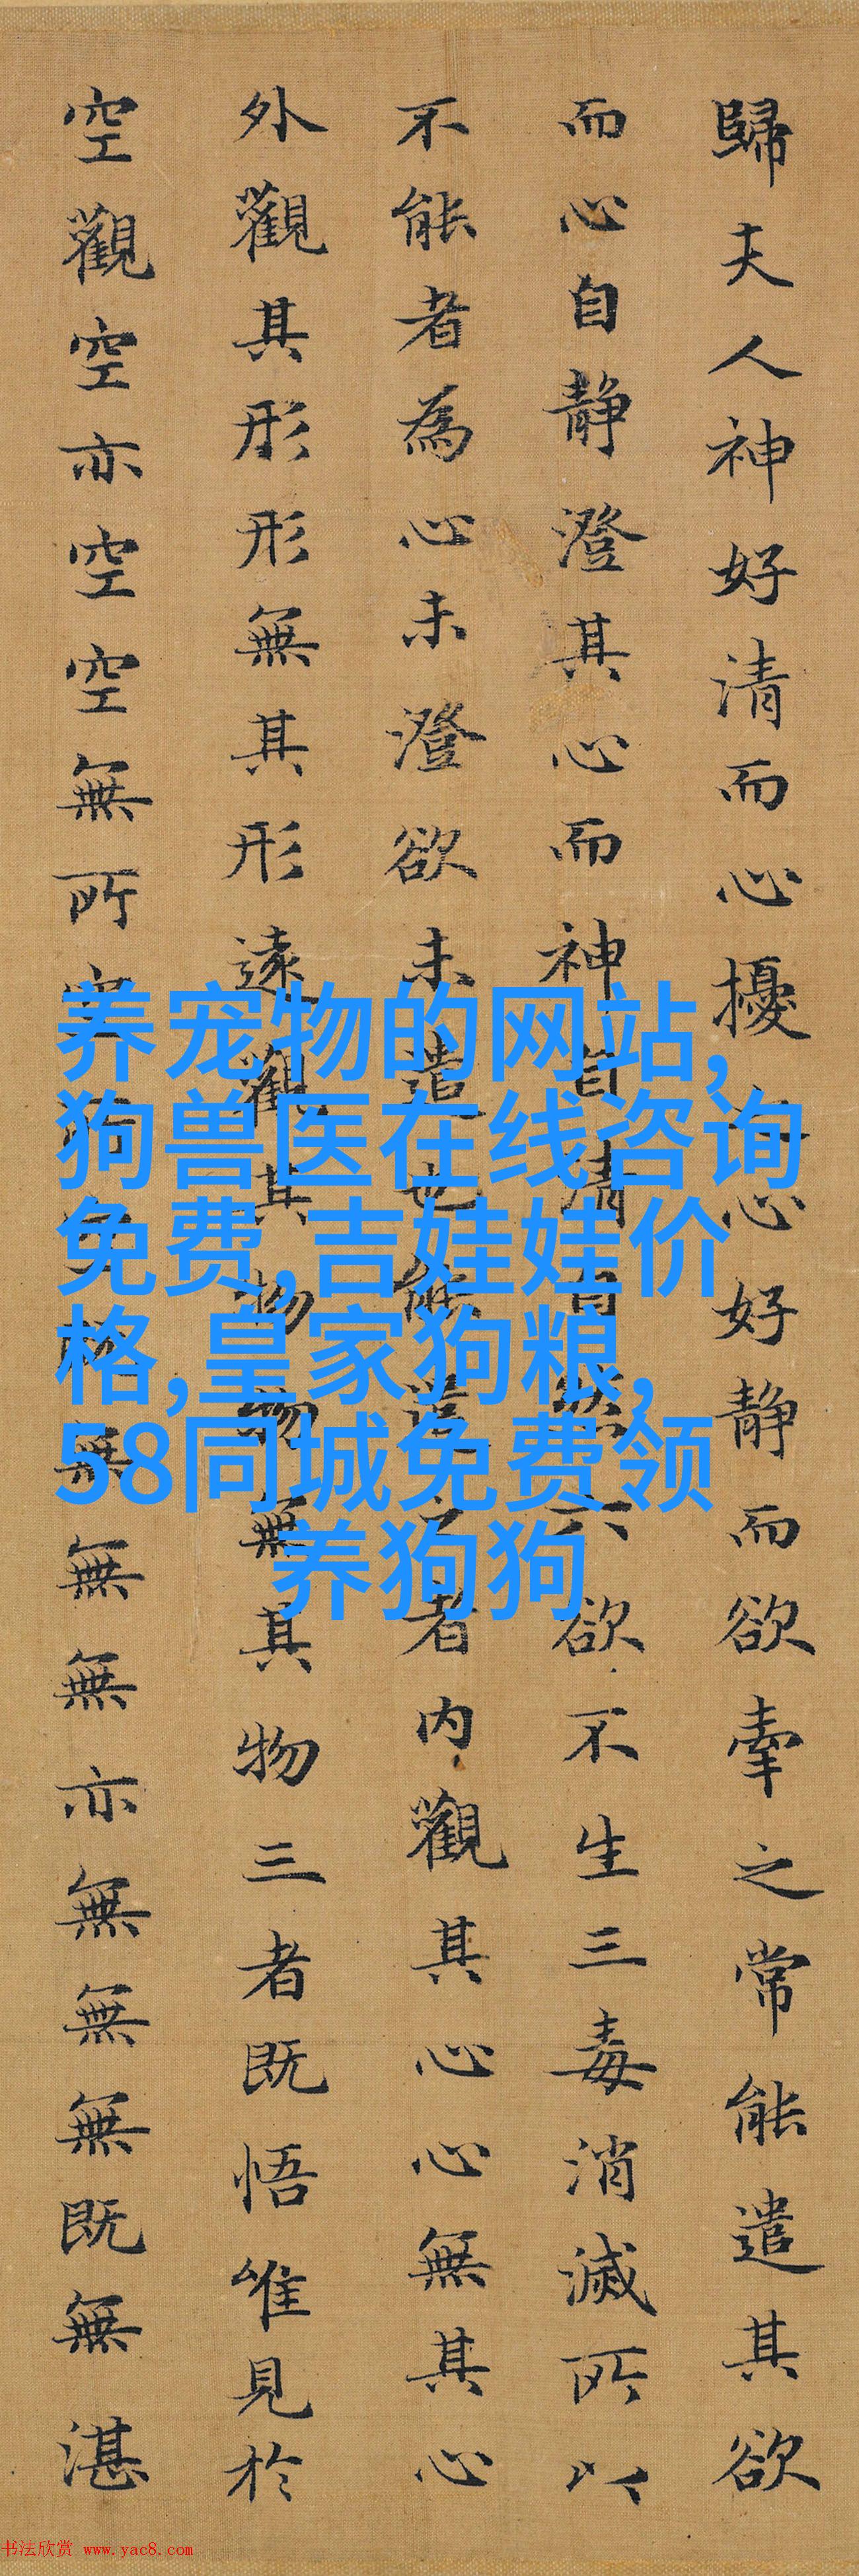 歸夫人神好清而心擾心好静而欲牽之常能遣其欲
而心自静澄其心而神自清自然六欲不生三毒消滅所以
不能者為心未澄欲未遣也能遣之者内觀其心心無其心
外觀其形形無其形遠觀其物物無其物三者既悟唯見於
空觀空亦空空無所空所空既無無無亦無無無既無湛
养宠物的网站,
狗兽医在线咨询
免费,吉娃娃价
格,皇家狗粮,
58同城免费领
养狗狗
书法欣赏 www.yac8.com